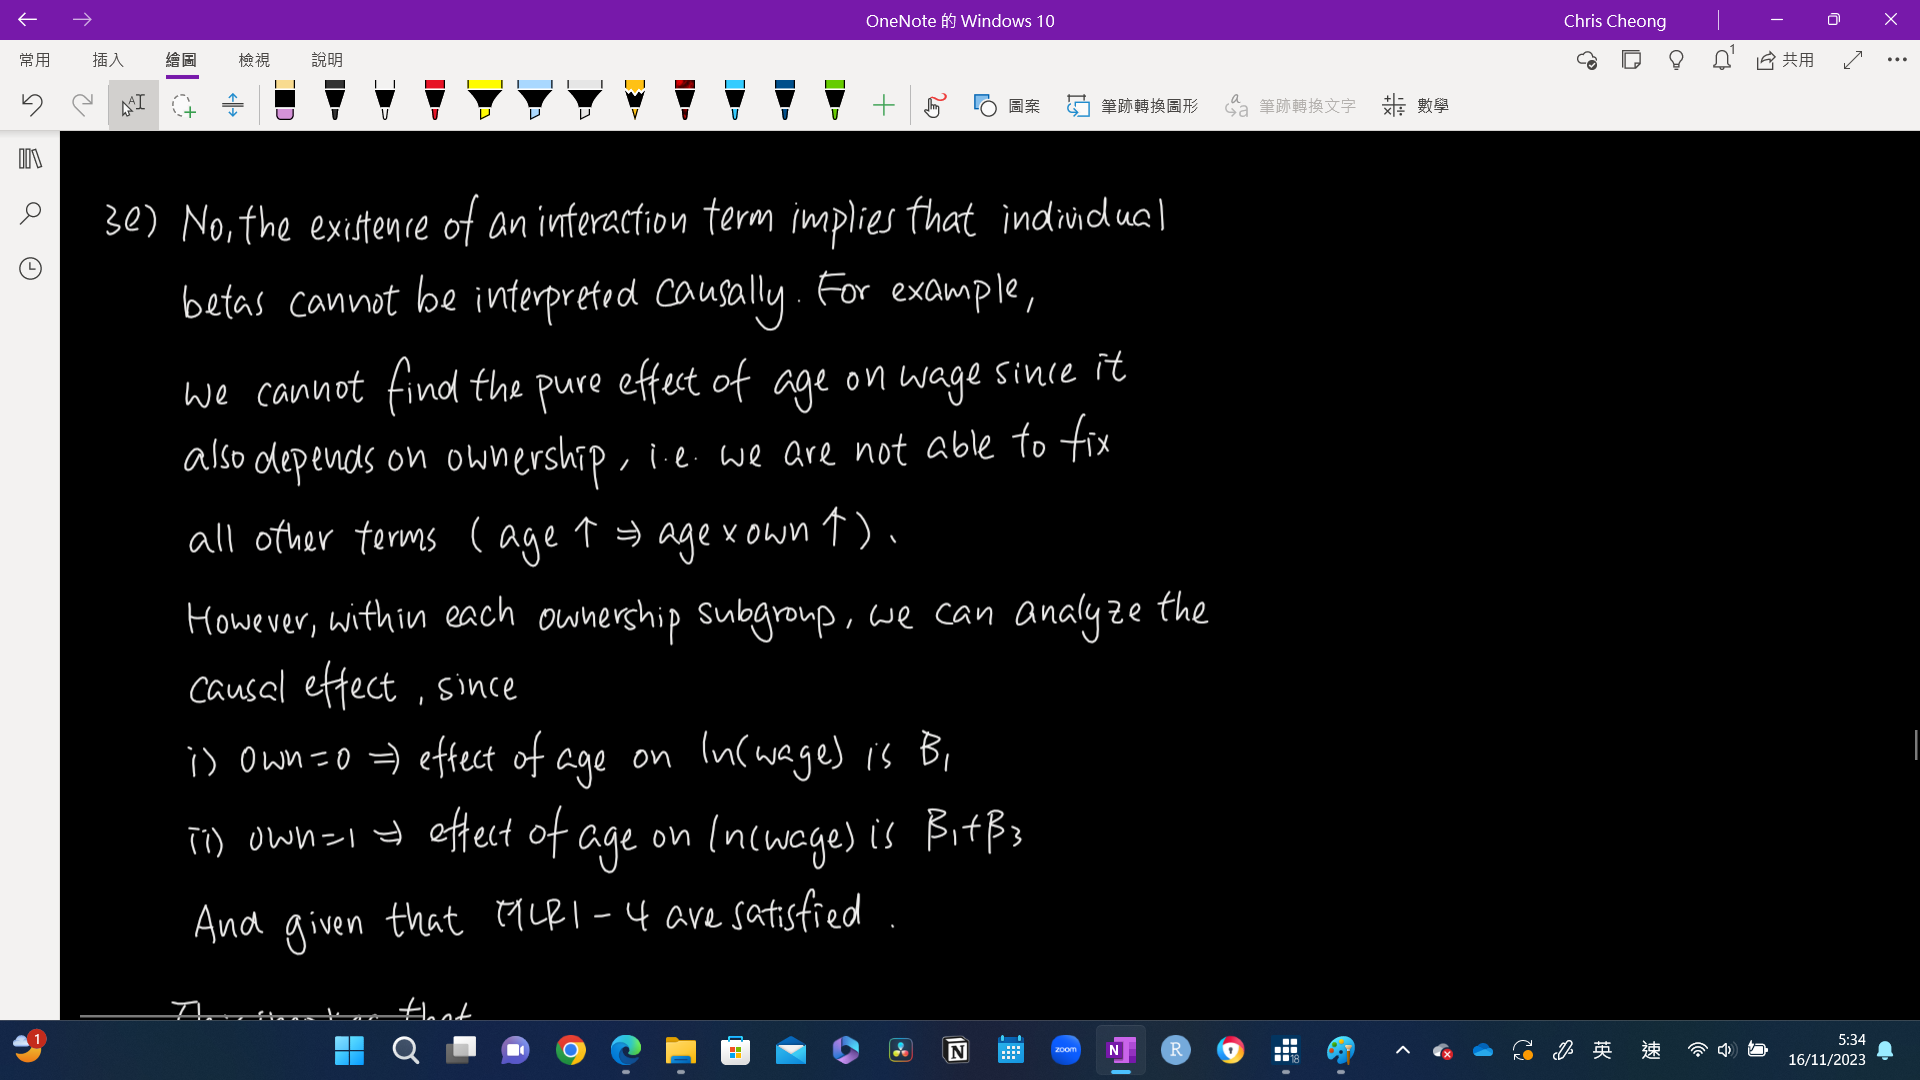 OneNote 的 Windows 10
Chris Cheong
常用 插入 繪圖 檢視 說明
1
共用
圖案 筆跡轉換圖形 筆跡轉換文字 數學
3e) No, the existence of an interaction term implies that individual
betas cannot be interpreted causally. For example,
we cannot find the pure effect of age on wage since it
also depends on ownership, i.e. we are not able to fix
all other terms ( age ↑ ⇒ age × own ↑ ).
However, within each ownership subgroup, we can analyze the
causal effect, since
i) own=0 ⇒ effect of age on ln(wage) is β₁
ii) own=1 ⇒ effect of age on ln(wage) is β₁+β₃
And given that MLR1-4 are satisfied.
that
1
zoom
N
R
18
英
速
5:34
16/11/2023